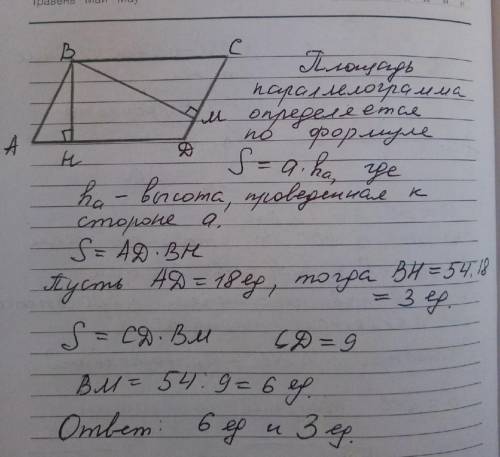 Травень Май May
B
C
A
H
D
M
Площадь
параллелограмма
определяется
по формуле
S = a · ha, где
ha – высота, проведенная к
стороне a.
S = AD · BH
Пусть AD = 18 ед, тогда BH = 54:18
= 3 ед.
S = CD · BM CD = 9
BM = 54 : 9 = 6 ед.
Ответ: 6 ед и 3 ед.